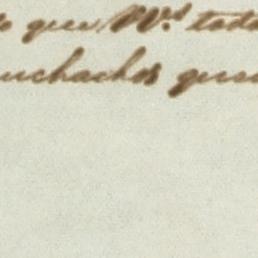 que V.s toda
uchachos que